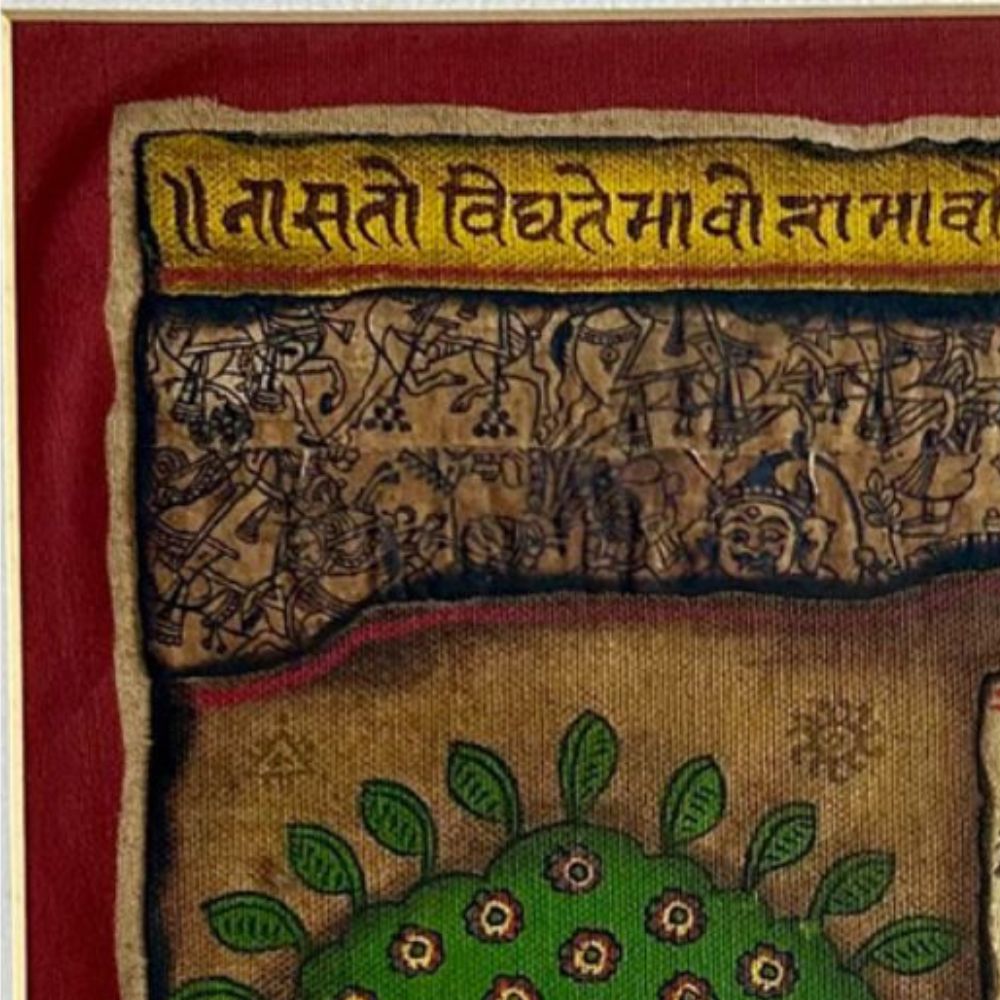 ॥ नासतो विद्यते मावो नामावो